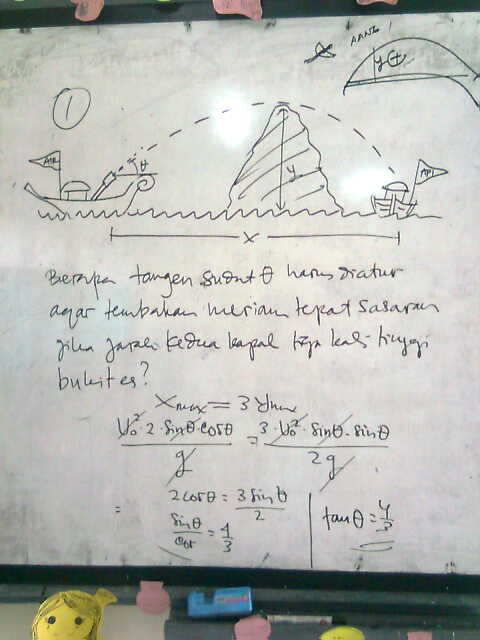 1
y(+)
AIR
θ
y
API
x
Berapa tangen sudut θ harus diatur
agar tembakan meriam tepat sasaran
jika jarak kedua kapal tiga kali tinggi
bukit es?
Xmax = 3 Ymax
V₀² · 2 · sinθ · cosθ / g = 3 · V₀² · sinθ · sinθ / 2g
= 2 cosθ = 3 sinθ / 2
sinθ / cosθ = 4/3
tan θ = 4/3